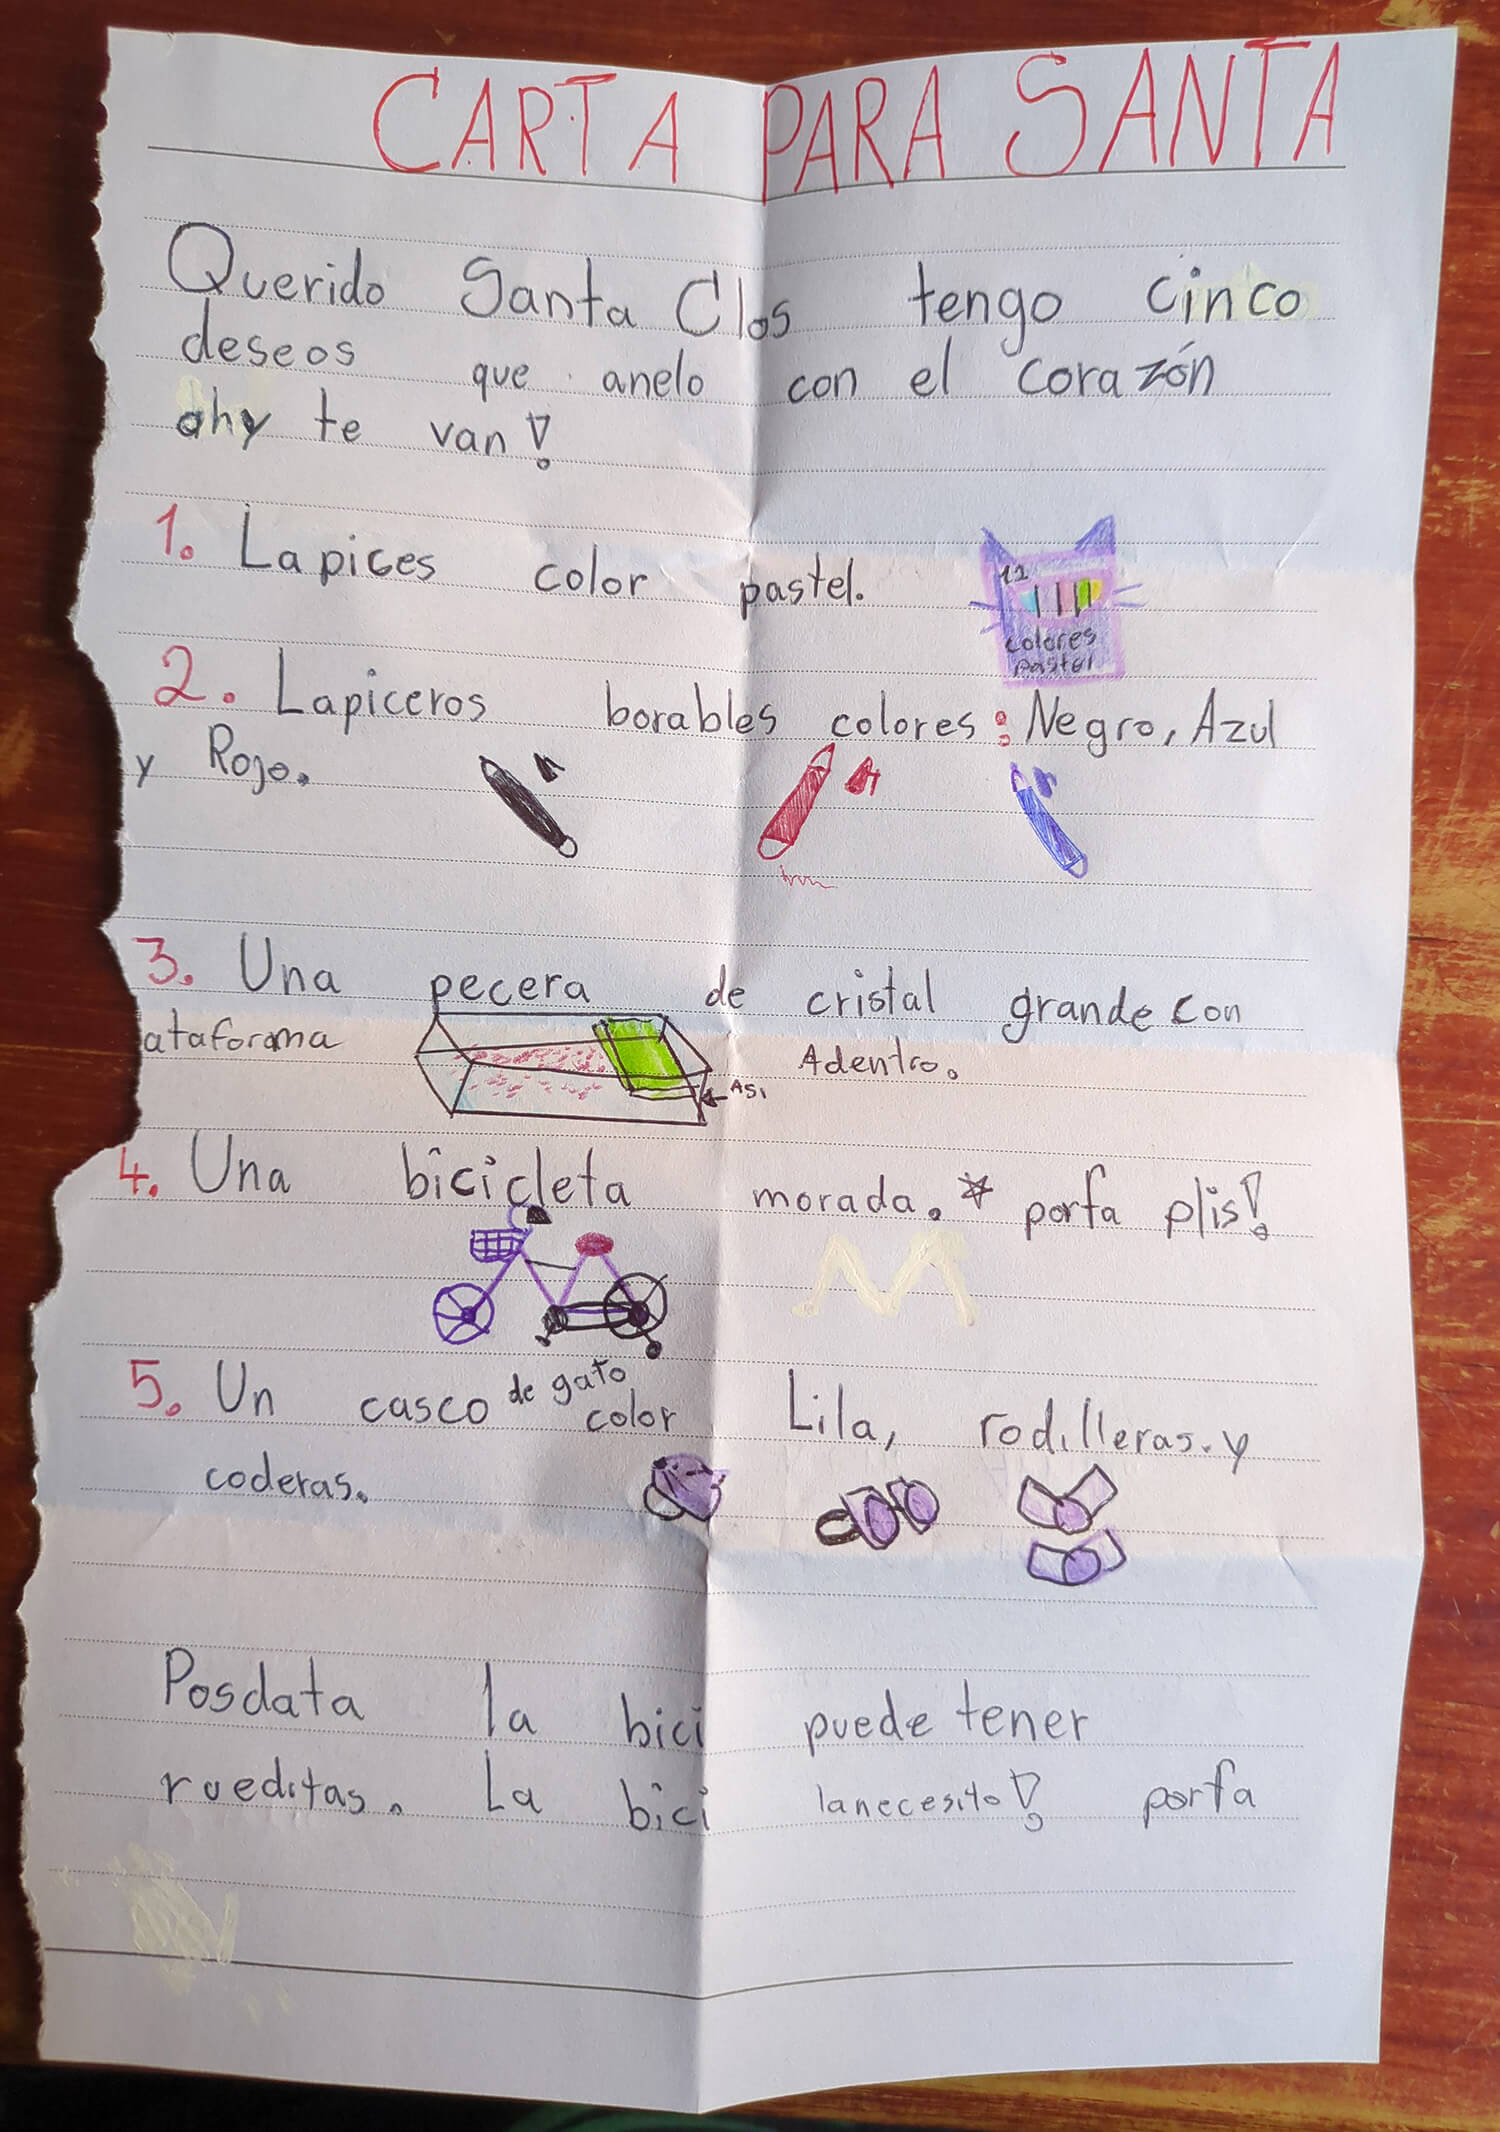 CARTA PARA SANTA
Querido Santa Clos tengo cinco
deseos que anelo con el corazón
ahy te van!
1. Lapices color pastel.
12
colores
pastel
2. Lapiceros borables colores: Negro, Azul
y Rojo.
3. Una pecera de cristal grande con
ataforma Adentro.
Asi
4. Una bicicleta morada. * porfa plis!
5. Un casco de gato color Lila, rodilleras. y
coderas.
Posdata la bici puede tener
rueditas. La bici lanecesito! porfa